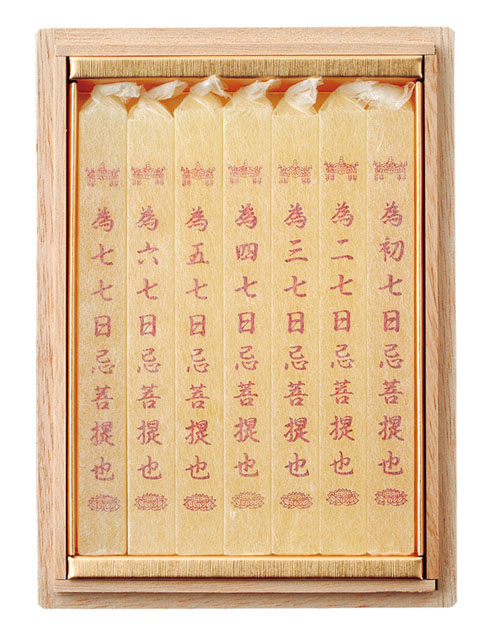 為初七日忌菩提也
為二七日忌菩提也
為三七日忌菩提也
為四七日忌菩提也
為五七日忌菩提也
為六七日忌菩提也
為七七日忌菩提也